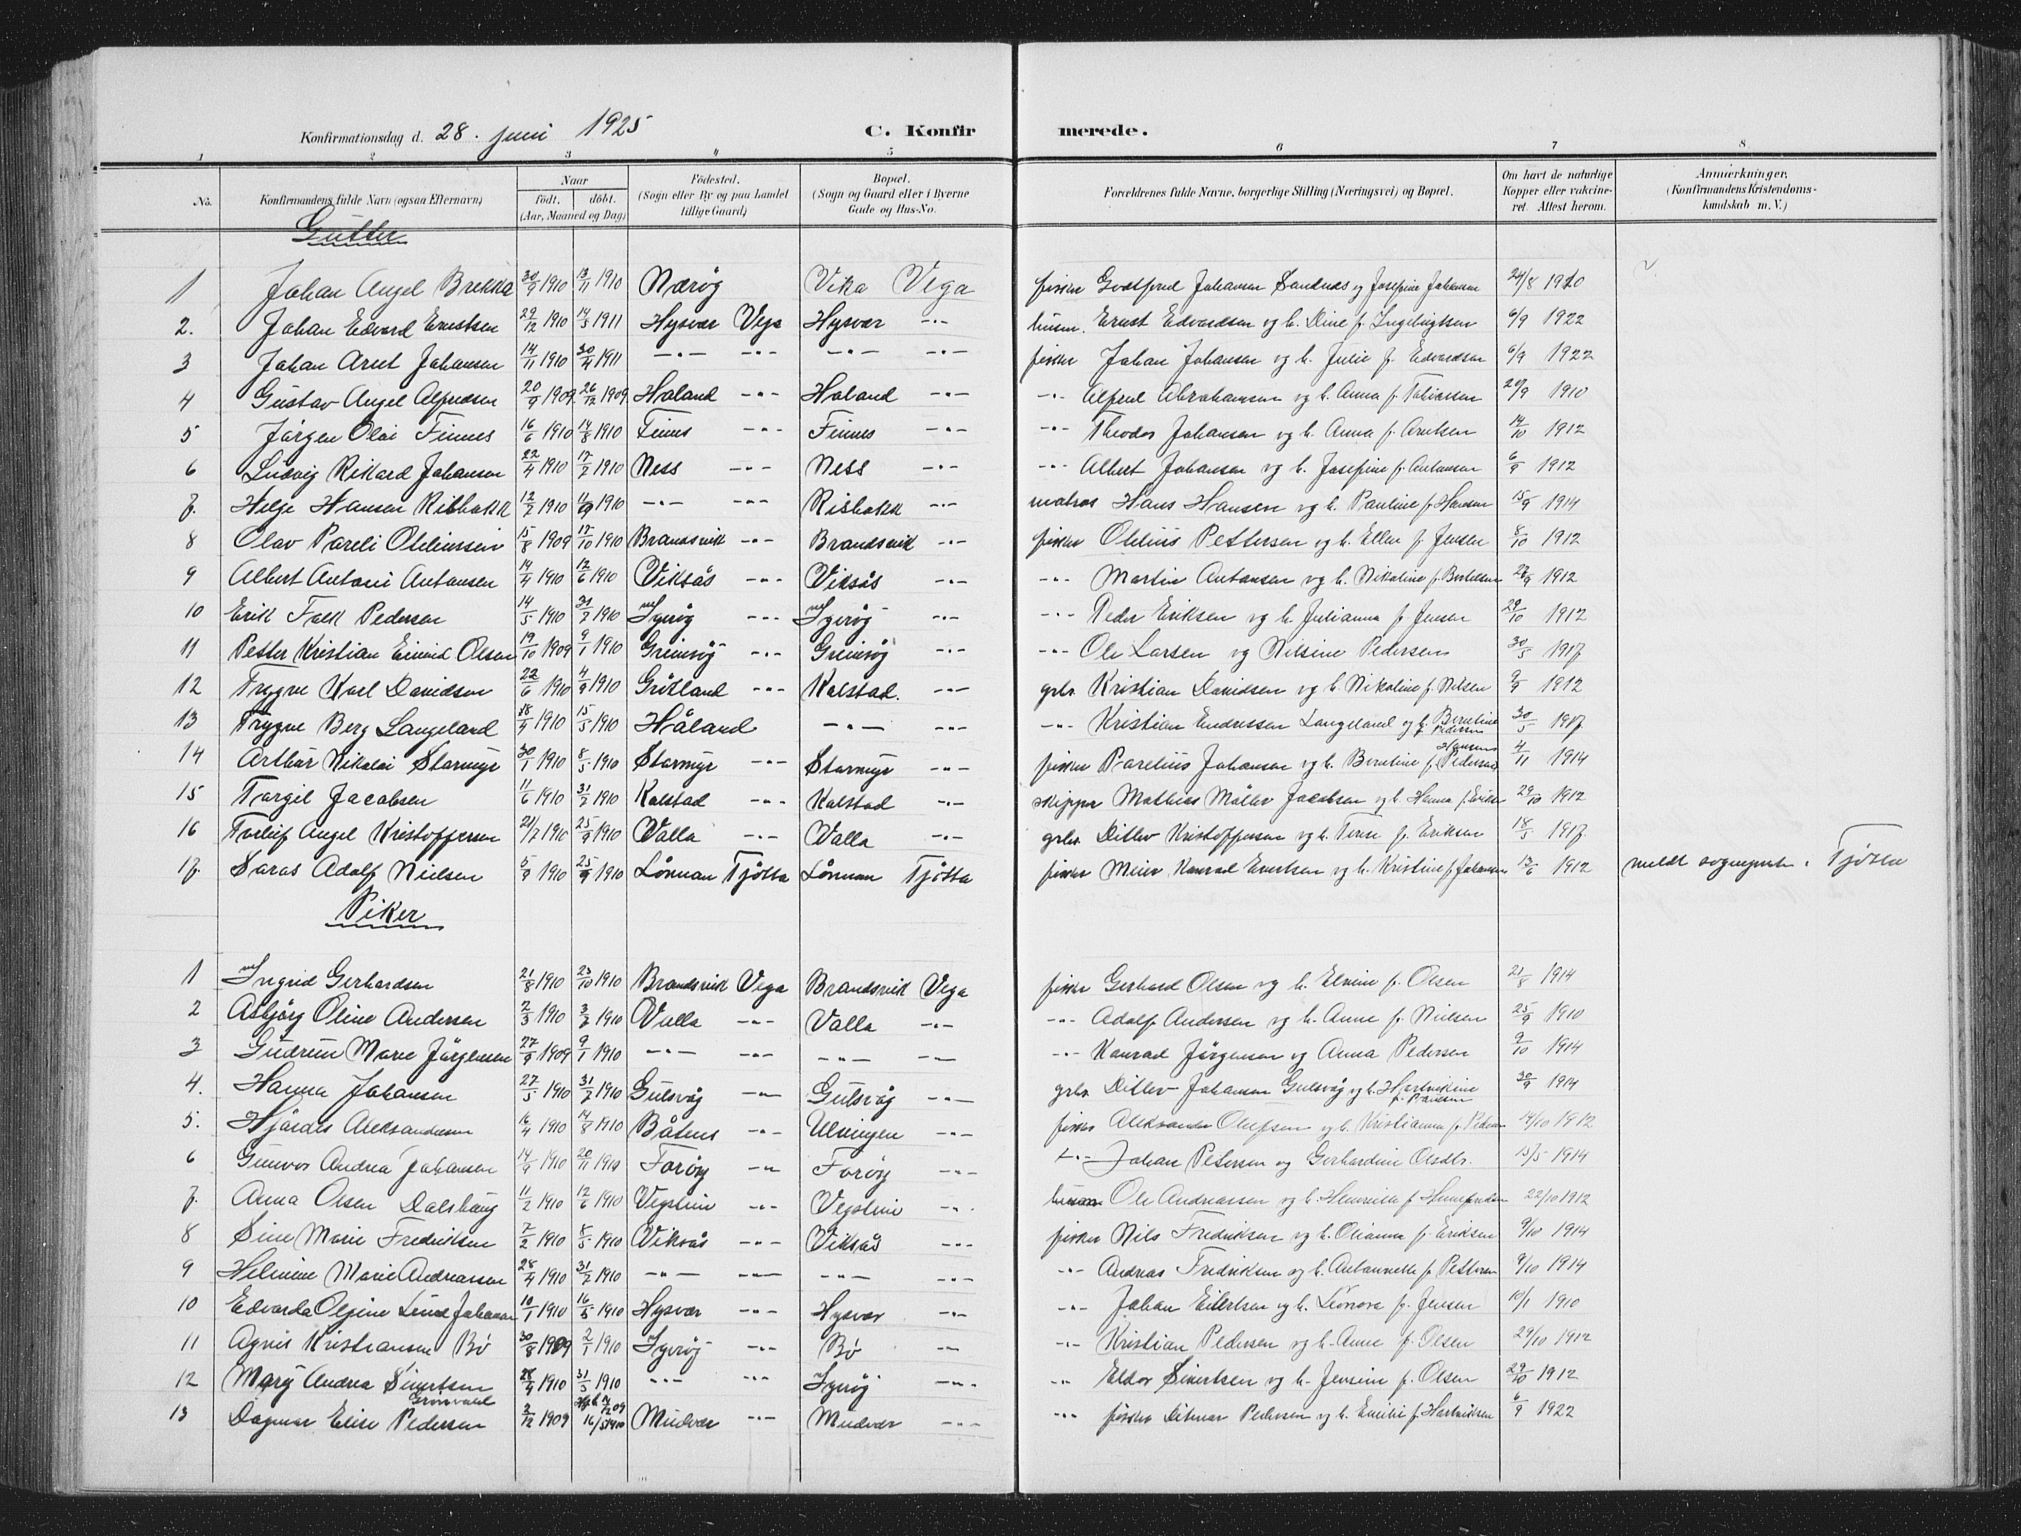 Konfirmationsdag d. 28. juni 1925 C. Konfirmerede.
1 2 3 4 5 6 7 8
No. Konfirmandens fulde Navn (ogsaa Efternavn) Naar födt. döbt. (Aar, Maaned og Dag) Födested. (Sogn eller By og paa Landet tillige Gaard) Bopæl. (Sogn og Gaard eller i Byerne Gade og Hus-No. Forældrenes fulde Navne, borgerlige Stilling (Næringsvei) og Bopæl. Om havt de naturlige Kopper eller vakcineret. Attest herom. Anmærkninger. (Konfirmandens Kristendomskundskab m. V.)
Gutter
1 Johan Angel Brekka 30/9 1910 13/11 1910 Nærøy Vika Vega fisker Godtfred Johansen Sandnes og Josefine Johansen 24/8 1920
2. Johan Edvard Ernstsen 29/12 1910 14/5 1911 Hysvær Vega Hysvær -"- husm. Ernst Edvardsen og h. Dine f. Ingebrigtsen 6/9 1922
3 Johan Arnt Johansen 14/11 1910 30/4 1911 -"- -"- -"- -"- fisker Johan Johansen og h. Julie f. Edvardsen 6/9 1922
4 Gustav Angel Alfredsen 20/9 1909 26/12 1909 Haland -"- Haland -"- -"- Alfred Abrahamsen og h. Anna f. Tobiassen 20/9 1910
5 Jørgen Olai Finnes 16/6 1910 14/8 1910 Finnes -"- Finnes -"- -"- Theodor Johansen og h. Anna f. Arntsen 14/10 1912
6 Ludvig Rikard Johansen 22/4 1910 17/2 1910 Ness -"- Ness -"- -"- Albert Johansen og h. Josefine f. Antonsen 6/9 1912
7. Helge Hansen Risbakk 12/2 1910 11/9 1910 -"- -"- Risbakk -"- matros Hans Hansen og h. Pauline f. Hansen 15/9 1914
8 Olav Pareli Oteliussen 15/8 1909 17/10 1910 Brandsvik -"- Brandsvik -"- fisker Otelius Pettersen og h. Ellen f. Jensen 8/10 1912
9 Albert Antoni Antonsen 14/4 1910 12/6 1910 Viksås -"- Viksås -"- -"- Martin Antonsen og h. Nikoline f. Bertelsen 27/9 1912
10 Erik Falk Pedersen 14/5 1910 31/7 1910 Igerøy -"- Igerøy -"- -"- Peder Eriksen og h. Julianna f. Jensen 29/10 1912
11 Petter Kristian Eivind Olsen 19/10 1909 9/1 1910 Grimsøy -"- Grimsøy -"- -"- Ole Larsen og Nilsine Pedersen 30/5 1917
12 Trygve Karl Davidsen 22/6 1910 4/9 1910 Grötland -"- Kalstad. -"- grbr. Kristian Davidsen og h. Nikoline f. Nilsen 9/9 1912
13 Trygve Berg Langeland 18/4 1910 15/5 1910 Håland -"- -"- -"- Kristian Endressen Langeland og h. Berntine f. Pedersen 30/5 1917
14 Arthur Nikolai Stormyr 30/1 1910 8/5 1910 Stormyr -"- Stormyr -"- fisker Parelius Johansen og h. Berntine f. Pedersen Hansen 4/11 1914
15 Torgil Jacobsen 11/6 1910 31/7 1910 Kalstad -"- Kalstad -"- skipper Mathias Møller Jacobsen og h. Hanna f. Eriksen 29/10 1912
16 Torleif Angel Kristoffersen 21/7 1910 25/9 1910 Valla -"- Valla -"- grbr. Ditlev Kristoffersen og h. Terese f. Eriksen 18/5 1917
17. Saras Adolf Nielsen 5/9 1910 25/9 1910 Lönnan Tjötta Lönnan Tjötta fisker Meier Konrad Evertsen og h. Kristine f. Johansen 13/6 1912 meldt sogneprest. i Tjötta
Piker
1 Ingrid Gerhardsen 21/8 1910 23/10 1910 Brandsvik Vega Brandsvik Vega fisker Gerhard Olsen og h. Elvine f. Olsen 21/8 1914
2 Asbjörg Oline Andersen 2/3 1910 3/7 1910 Valla -"- Valla -"- -"- Adolf Andersen og h. Anne f. Nielsen 25/9 1910
3 Gudrun Marie Jörgensen 27/9 1909 9/1 1910 -"- -"- -"- -"- -"- Konrad Jörgensen og Anna Pedersen 9/10 1914
4. Hanna Johansen 27/5 1910 31/7 1910 Gulsvåg -"- Gulsvåg -"- grbr. Ditlev Johansen Gulsvåg og h. Hartvikine f. Paulsen 30/9 1914
5. Hjördis Aleksandersen 16/4 1910 14/8 1910 Båtnes -"- Ulsingen -"- fisker Aleksander Olufsen og h. Kristianna f. Pedersen 14/10 1912
6 Gunvor Andrea Johansen 14/9 1910 20/11 1910 Forøy -"- Forøy -"- -"- Johan Petersen og Gerhardine Olsdtr. 15/5 1914
7. Anna Olsen Dalshaug 11/2 1910 12/6 1910 Vegstein -"- Vegstein -"- husm. Ole Andreassen og h. Henrietta f. 22/10 1912
8 Sine Marie Fredriksen 7/2 1910 8/5 1910 Viksås -"- Viksås -"- fisker Nils Fredriksen og h. Olianna f. Eriksen 9/10 1914
9 Helmine Marie Andreassen 28/4 1910 31/7 1910 -"- -"- -"- -"- -"- Andreas Fredriksen og h. Antonette f. Pettersen 9/10 1914
10 Edvarda Olgine Lund Johansen 10/1 1910 16/5 1910 Hysvær -"- Hysvær -"- -"- Johan Eilertsen og h. Leonora f. Jensen 10/1 1910
11 Agnes Kristiansen Bø 30/8 1909 2/1 1910 Igerøy -"- Bø -"- -"- Kristian Pedersen og h. Anne f. Olsen 29/10 1912
12 Mary Andrea Sivertsen 28/4 1910 31/5 1910 -"- -"- Igerøy -"- -"- Eldor Sivertsen og h. Jensine f. Olsen 29/10 1912
13 Dagmar Elise Pedersen Grönvold 3/12 1909 Hjd. 7/12 09 16/5 1910 Mudvær -"- Mudvær -"- -"- fisker Ditmar Pedersen og h. Emilie f. Hartviksen 6/9 1922